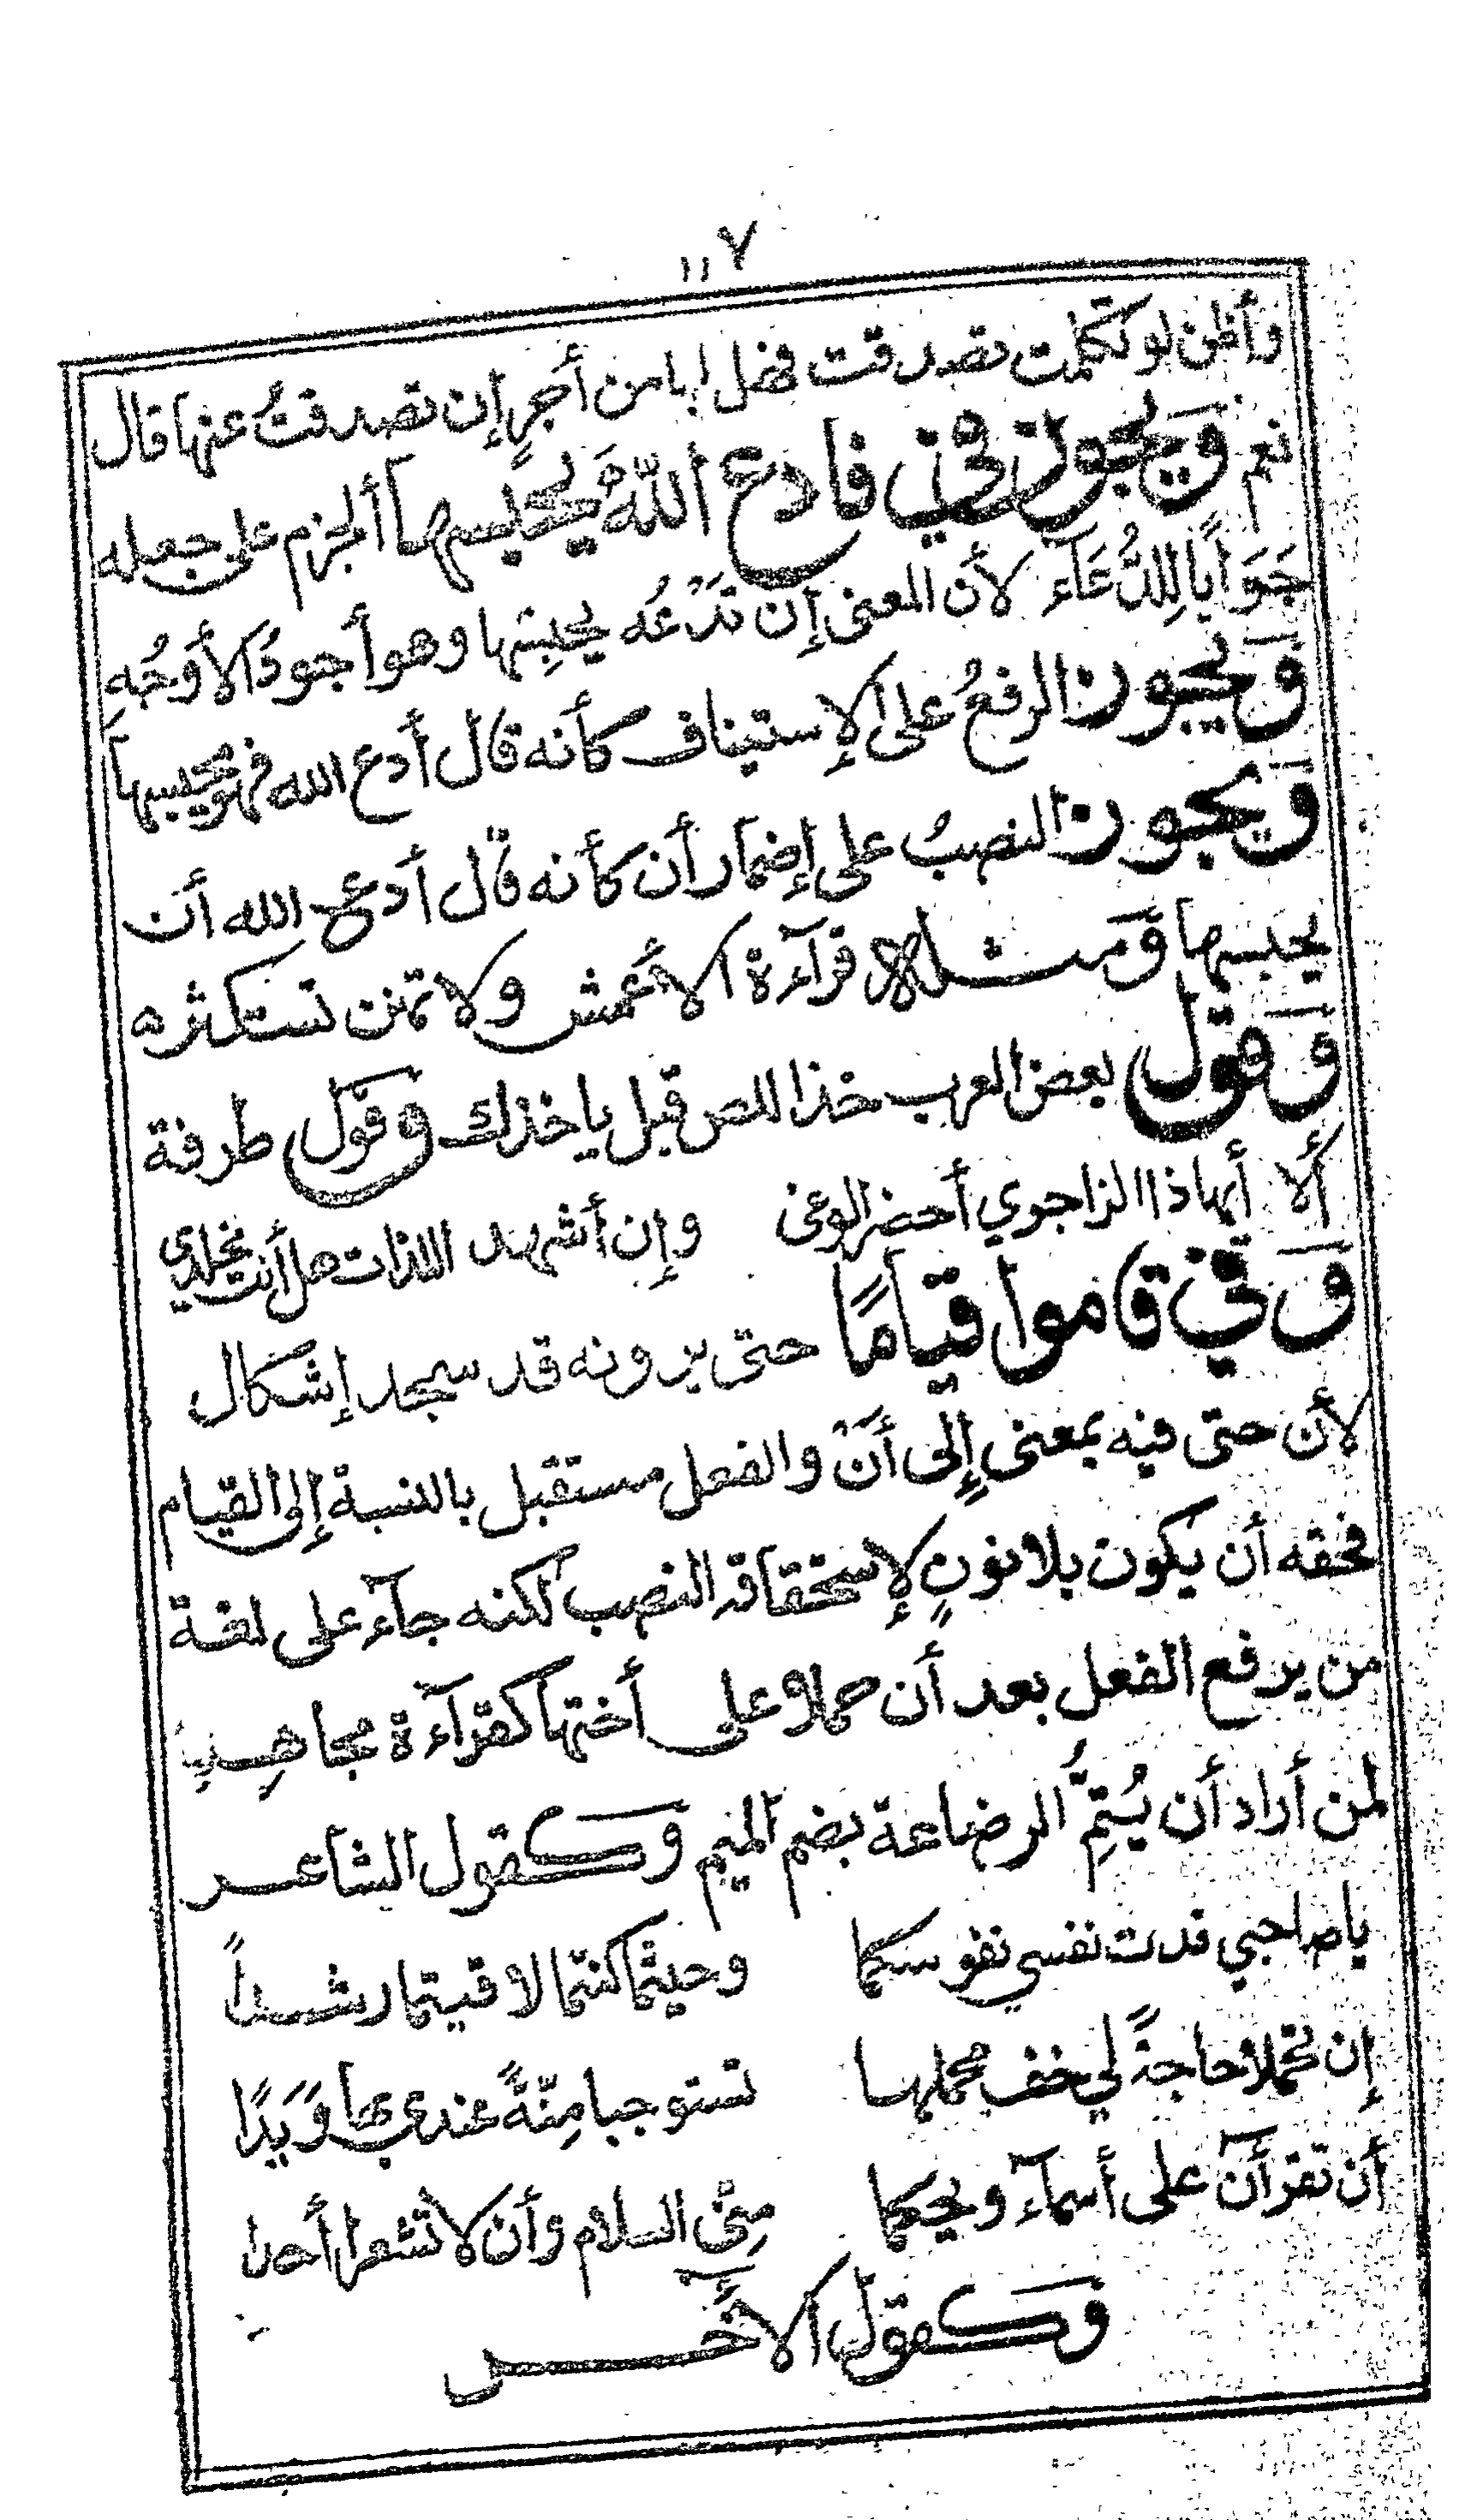 ١١٧
وأظن لو تكلمت تصدقت فهل لها من أجرٍ إن تصدقتُ عنها قال
نعم وَيجوز في فادع اللهَ يحبسها ألجزم على جعله
جَوَابًا لِلدُّعَآء لأن المعنى إن تَدْعُه يحبِسْها وهو أجودُ الأوجُهِ
وَيجوز الرفعُ على الإستيناف كأنه قال أدع الله فهو يحبسها
وَيجوز النصبُ على إضمار أن كأنه قال أدع الله أن
يحبسها وَمثله قرآءة الأعمش ولا تمنن تستكثره
وَقول بعض العرب خذ اللص قبل ياخذك وَقول طرفة
ألا أيهاذا الزاجري أحضر الوغى وإن أشهد اللذات هل أنت مخلدي
وَفي قاموا قيامًا حتى يرونه قد سجد إشكال
لأن حتى فيه بمعنى إلى أنْ والفعل مستقبل بالنسبة إلى القيام
فحقه أن يكون بلا نونٍ لإستحقاقه النصب لكنه جآء على لغة
من يرفع الفعل بعد أن حملا على أختها كقرآءة مجاهِدٍ
لمن أراد أن يُتِمُّ الرضاعة بضم الميم وَكقول الشاعر
يا صاحبي فدت نفسي نفوسكما وحيثما كنتما لاقيتما رشداً
إن تحملا حاجةً لي خف محملها تستوجبا مِنّةً عندي بها وَيَدًا
أن تقرآن على أسمآء ويحكما مِنّي السلام وأن لا تشعرا أحدا
وَكقول الأخر